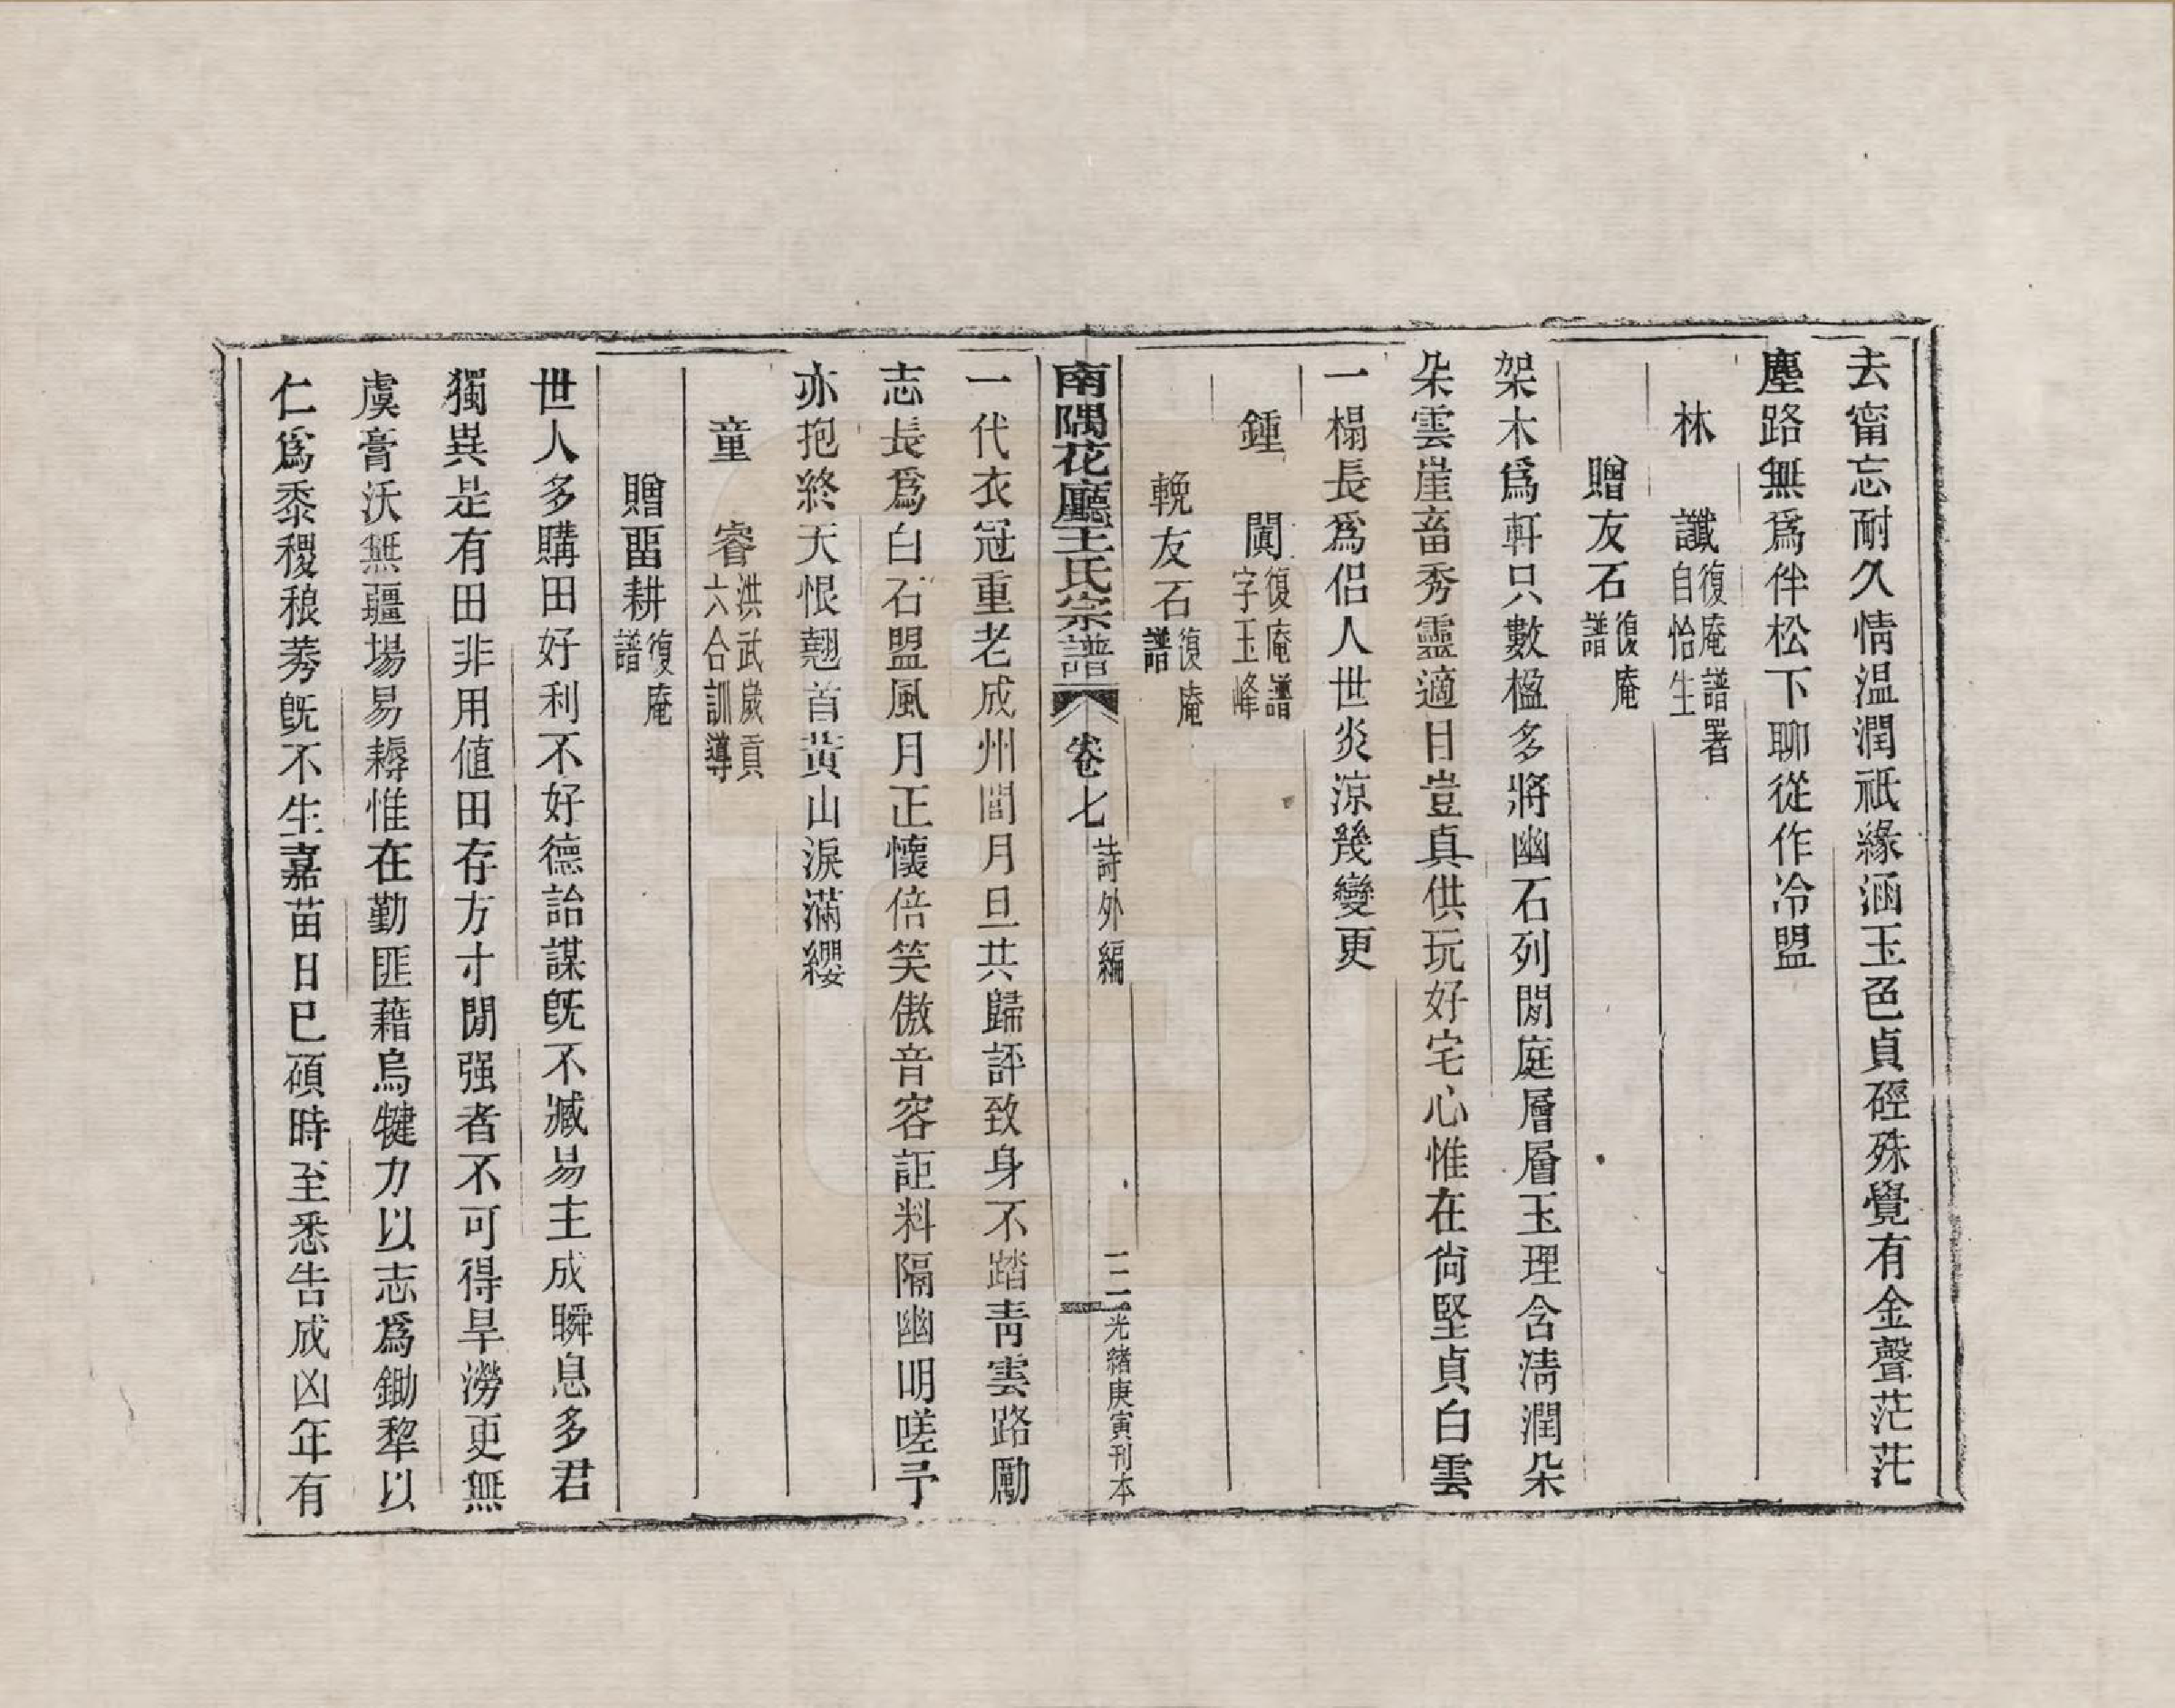 去甯忘耐久情温潤祇緣涵玉色貞硜殊覺有金聲茫茫
塵路無爲伴松下聊從作冷盟
林　讖復庵譜署自怡生
贈友石復庵譜
架木爲軒只數楹多將幽石列閒庭層層玉理含淸潤朶
朶雲崖畜秀靈適日豈真供玩好宅心惟在尙堅貞白雲
一榻長爲侶人世炎凉幾變更
鍾　闐復庵譜字玉峰
輓友石復庵譜
南隅花廳王氏宗譜　卷七　詩外編　二二　光緒庚寅刊本
一代衣冠重老成州閭月旦共歸評致身不踏靑雲路勵
志長爲白石盟風月正懷倍笑傲音容詎料隔幽明嗟予
亦抱終天恨翹首黃山淚滿纓
童　睿洪武歲貢六合訓導
贈畱耕復庵譜
世人多購田好利不好德詒謀旣不臧易主成瞬息多君
獨異是有田非用値田存方寸閒强者不可得旱澇更無
虞膏沃無疆場易耨惟在勤匪藉烏犍力以志爲鋤犂以
仁爲黍稷稂莠旣不生嘉苗日巳碩時至悉告成凶年有